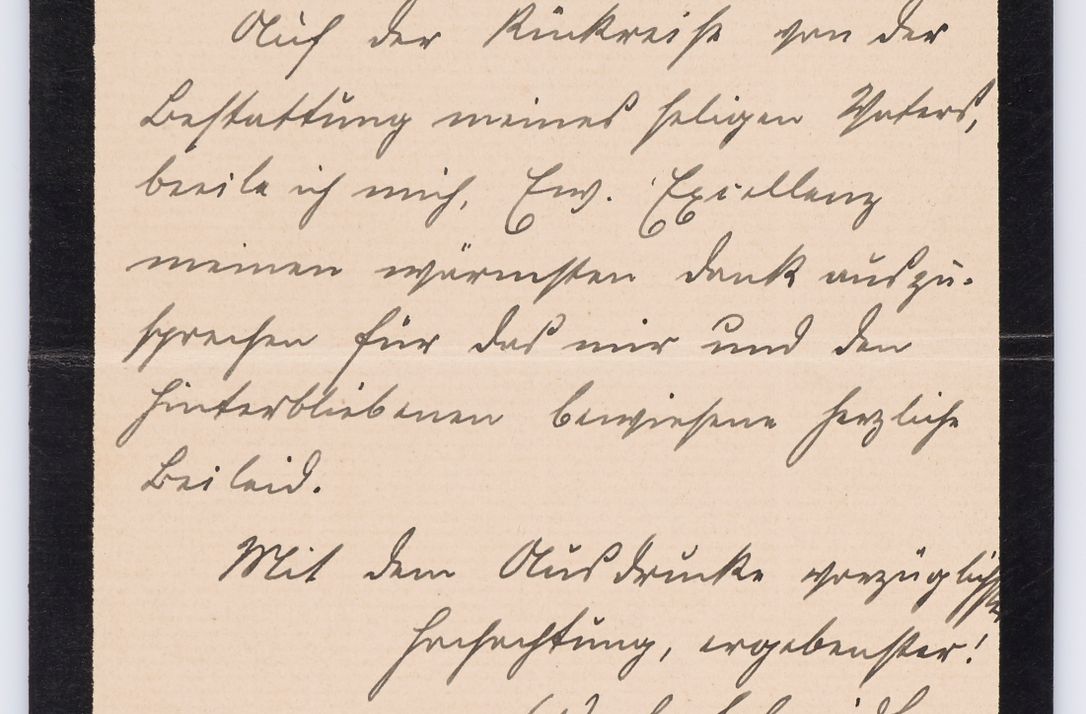 Auf der Rückreise von der
Bestattung meines seligen Vaters,
beeile ich mich, Ew. Excellenz
meinen wärmsten Dank auszu-
sprechen für das mir und den
Hinterbliebenen bewiesene herzliche
Beileid.
Mit dem Ausdrucke vorzüglichster
Hochachtung, ergebenster!